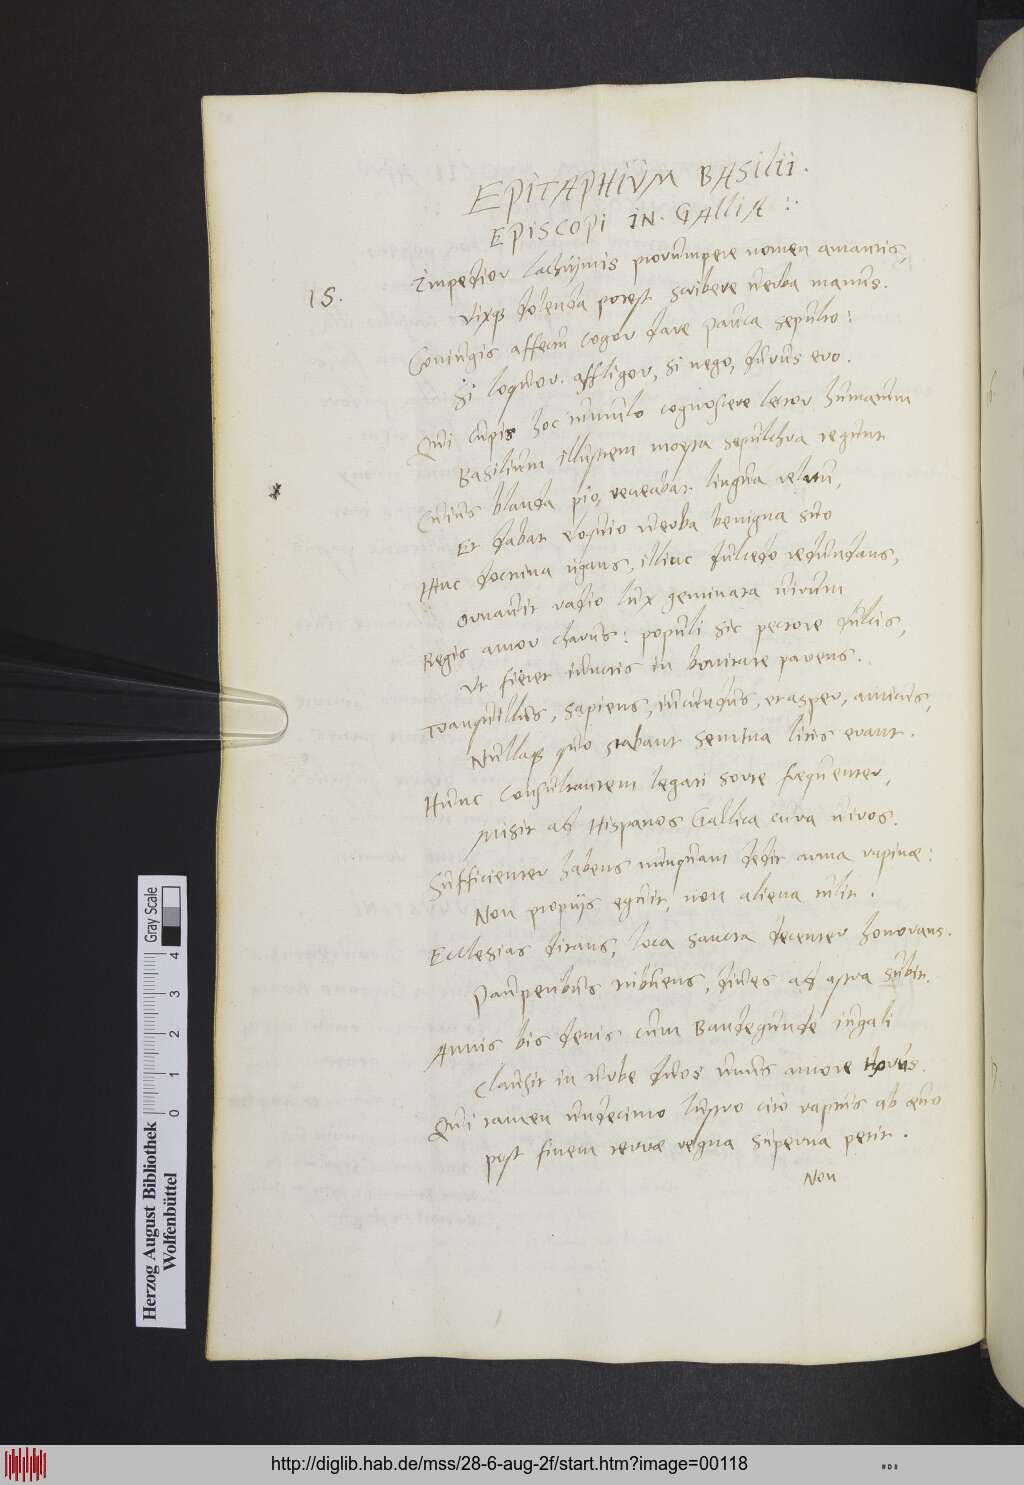 EPITAPHIUM BASILII.
EPISCOPI IN. GALLIA :.
15.
Impedior lachrymis prorumpere nomen amantis,
Vixq; dolenda potest scribere verba manus.
Coniugis affectu cogor dare pauca sepulto:
Si loquor. affligor, si nego, durus ero.
Qui cupis hoc tumulo cognoscere lector humatum
Basilium illustrem moesta sepulchra tegunt
Cuius blanda pio, recreabat lingua relatu,
Et dabat eloquio verba benigna suo
Hinc doctrina rigans, illinc dulcedo redundans,
Ornavit radio lux geminata virum
Regis amor charus: populi sic pectore dulcis,
Ut fieret iunctis in bonitate parens.
Tranquillus, sapiens, iucundus, et asper, amicus,
Nullaq; quo stabant semina litis erant.
Hunc consultantem legati sorte frequenter,
Misit ad Hispanos Gallica cura viros.
Sufficienter habens nunquam dedit arma rapinae:
Non propriis eguit, non aliena tulit.
Ecclesias ditans, loca sancta decenter honorans.
Pauperibus tribuens, dives ad astra subit.
Annis bis denis cum Baudegunde iugali
Clausit in urbe duos unus amore thorus.
Qui tamen undecimo lustro cito raptus ab aevo
post finem terrae regna superna petit.
Non
Herzog August Bibliothek
Wolfenbüttel
0 1 2 3 4
Gray Scale
http://diglib.hab.de/mss/28-6-aug-2f/start.htm?image=00118